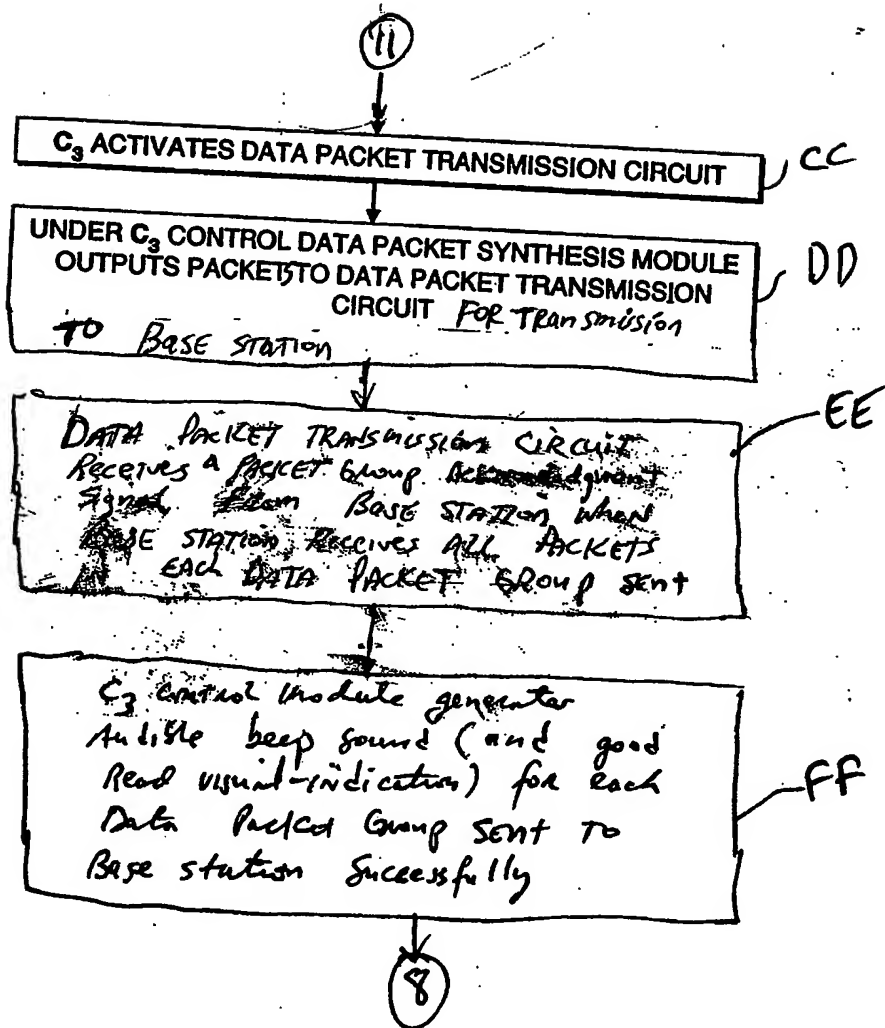 11
C3 ACTIVATES DATA PACKET TRANSMISSION CIRCUIT
CC
UNDER C3 CONTROL DATA PACKET SYNTHESIS MODULE
OUTPUTS PACKETS TO DATA PACKET TRANSMISSION
CIRCUIT FOR Transmission
TO BASE STATION
DD
DATA PACKET TRANSMISSION CIRCUIT
Receives a PACKET Group Acknowledgment
Signal From BASE STATION when
BASE STATION Receives ALL PACKETS
EACH DATA PACKET GROUP SENT
EE
C3 control module generates
Audible beep sound (and good
Read visual-indication) for each
Data Packet Group SENT TO
Base station Successfully
FF
8